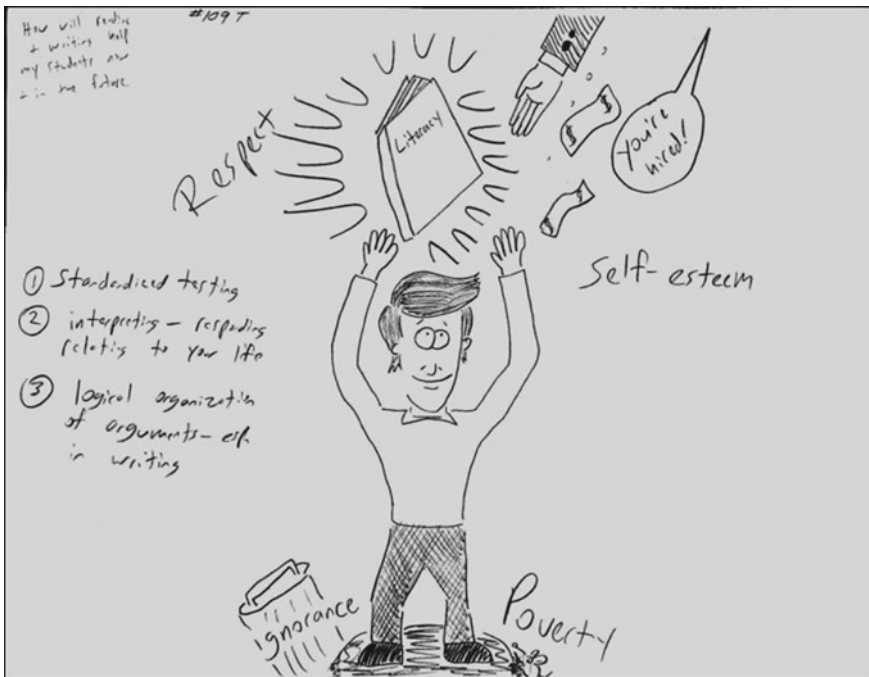 How will reading
+ writing help
my students now
+ in the future.
#109 T
Respect
Literacy
$
$
$
$
you're
hired!
Self-esteem
① Standardized testing
② interpreting – responding
relating to your life
③ logical organization
of arguments – esp.
in writing
Ignorance
Poverty